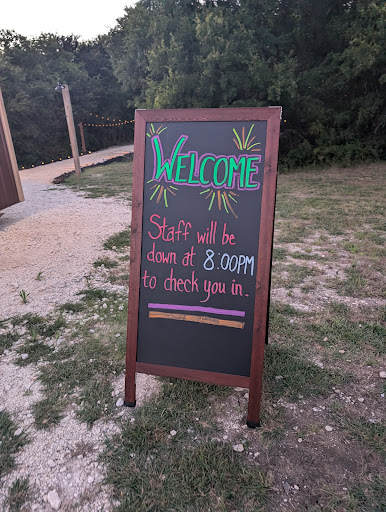 WELCOME
Staff will be
down at 8:00PM
to check you in.